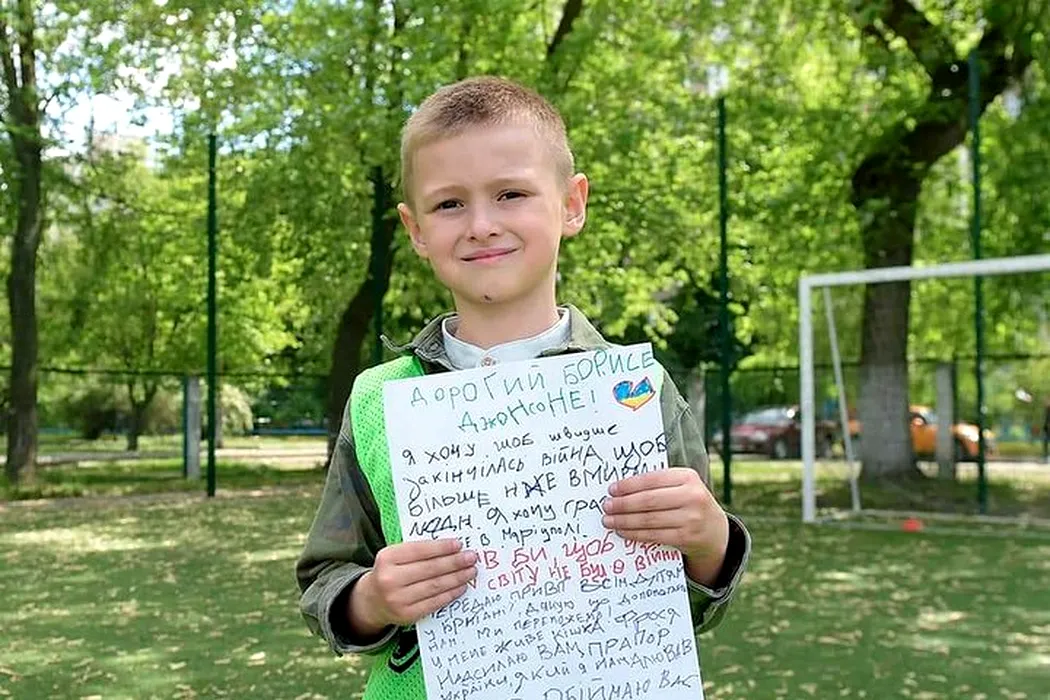 ДОРОГИЙ БОРИСЕ
ДЖОНСОНЕ!
Я ХОЧУ, ЩОБ ШВИДШЕ
ЗАКІНЧІЛАСЬ ВІЙНА, ЩОБ
БІЛЬШЕ НЕ ВМИРАЛИ
ЛЮДИ. Я ХОЧУ
В МАРІУПОЛІ!
БИ, ЩОБ
СВІТУ НЕ БУЛО ВІЙНИ
ПЕРЕДАЮ ПРИВІТ ВСІМ ДІТЯМ
У БРИТАНІЇ! ДЯКУЮ, ЩО ДОПОМОГЛИ
НАМ. МИ ПЕРЕМОЖЕМО!
У МЕНЕ ЖИВЕ КІШКА ФРОСЯ
НАДСИЛАЮ ВАМ ПРАПОР
УКРАЇНИ, ЯКИЙ Я НАМАЛЮВАВ
ОБІЙМАЮ ВАС